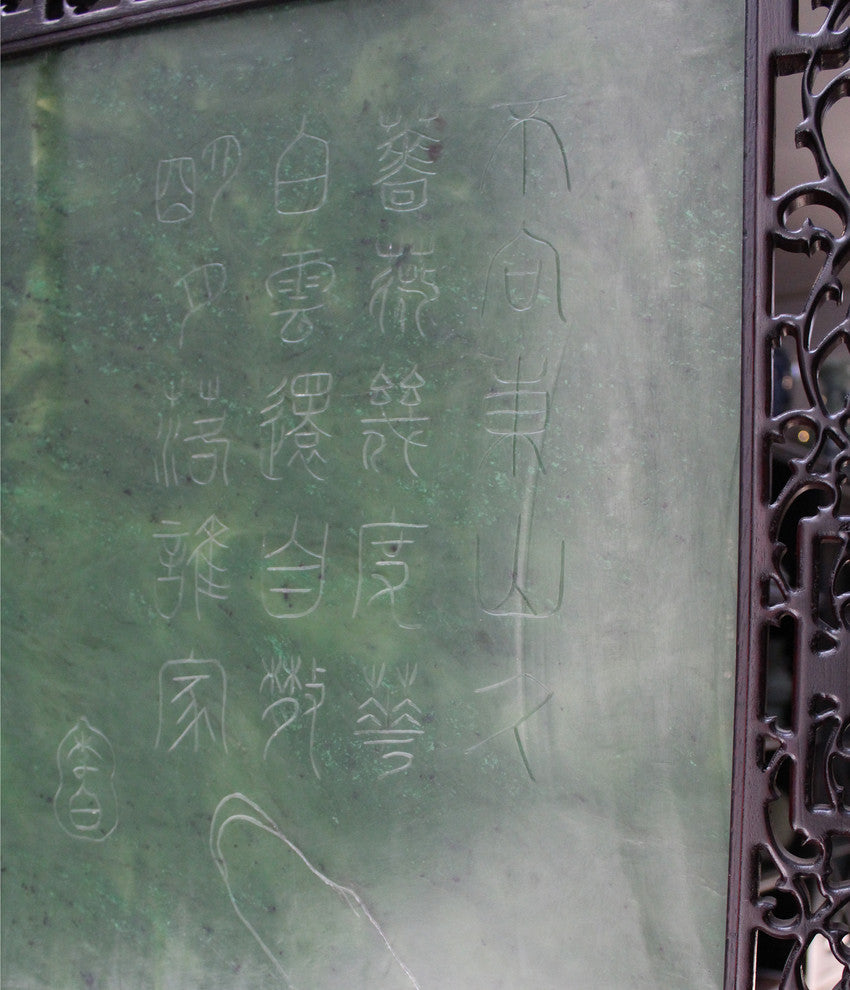 不向東山久
薔薇幾度華
白雲還自散
明月落誰家
李白